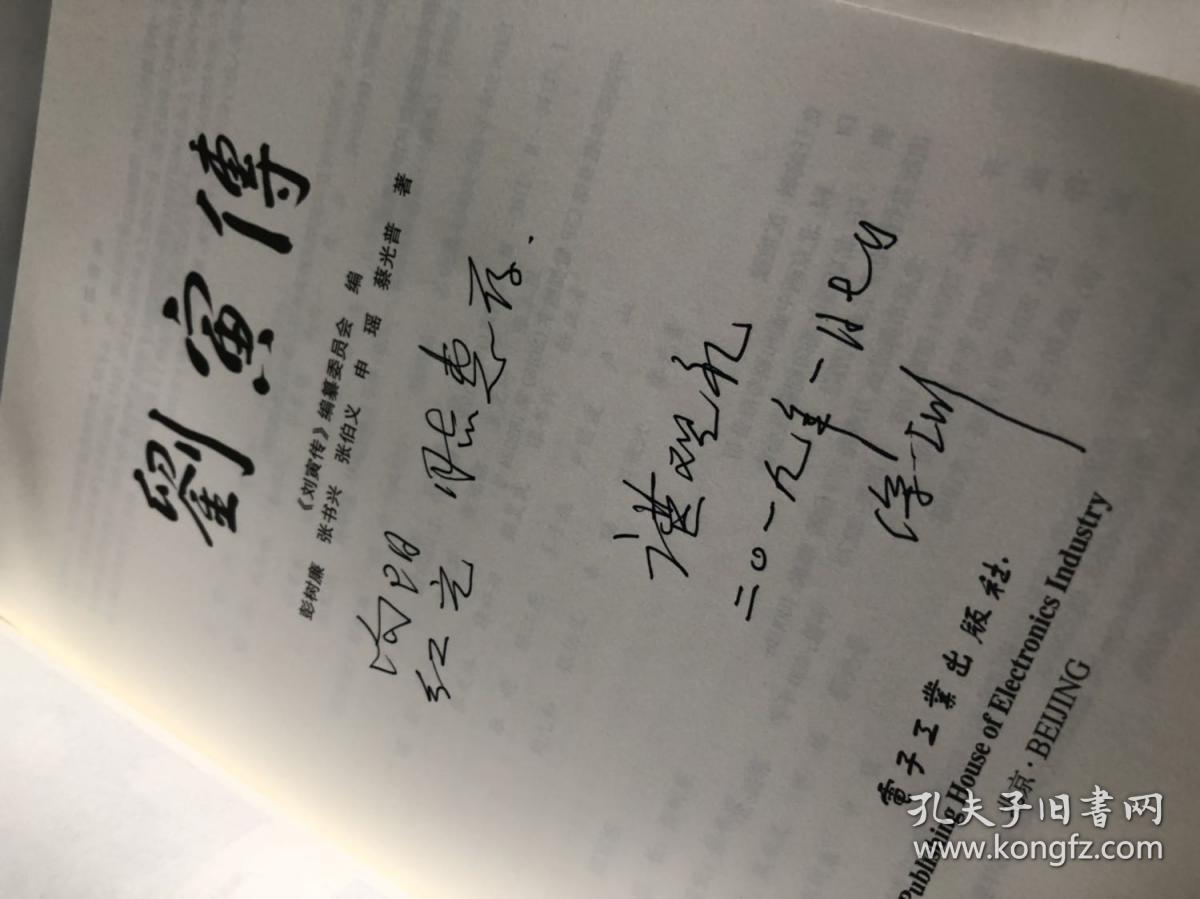 劉寅傳
《刘寅传》编纂委员会 编
彭树廉 张书兴 张伯义 申瑶 蔡光普 著
向阳
红光 惠存.
二〇一九年一月七日
深圳
電子工業出版社.
Publishing House of Electronics Industry
北京·BEIJING
孔夫子旧书网
www.kongfz.com